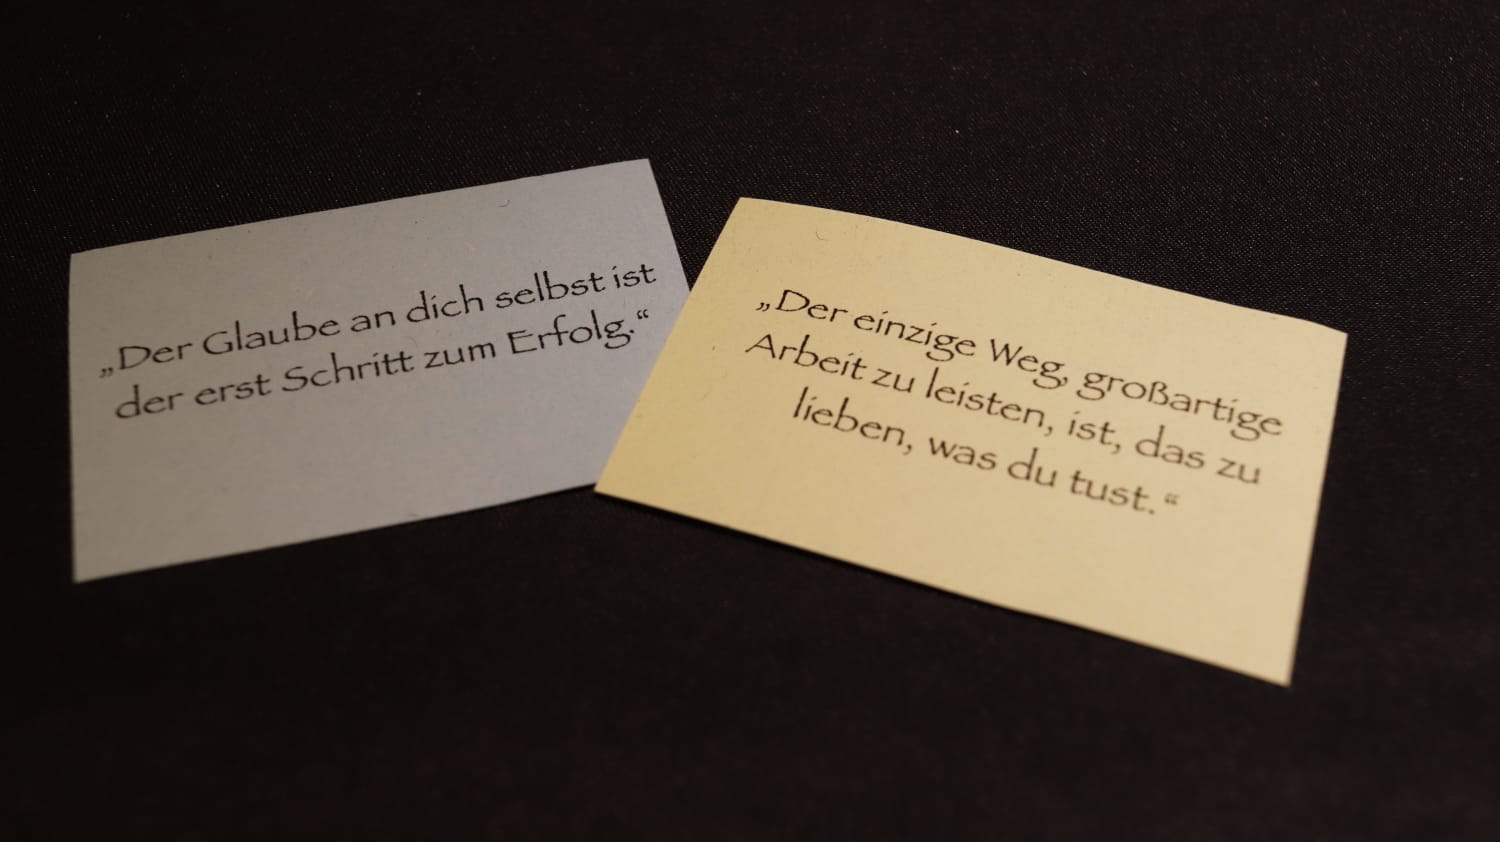 „Der Glaube an dich selbst ist
der erst Schritt zum Erfolg.“
„Der einzige Weg, großartige
Arbeit zu leisten, ist, das zu
lieben, was du tust.“